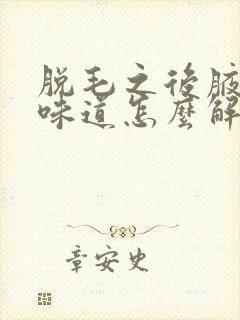 脱毛之後腋
味道怎麼解
章安史